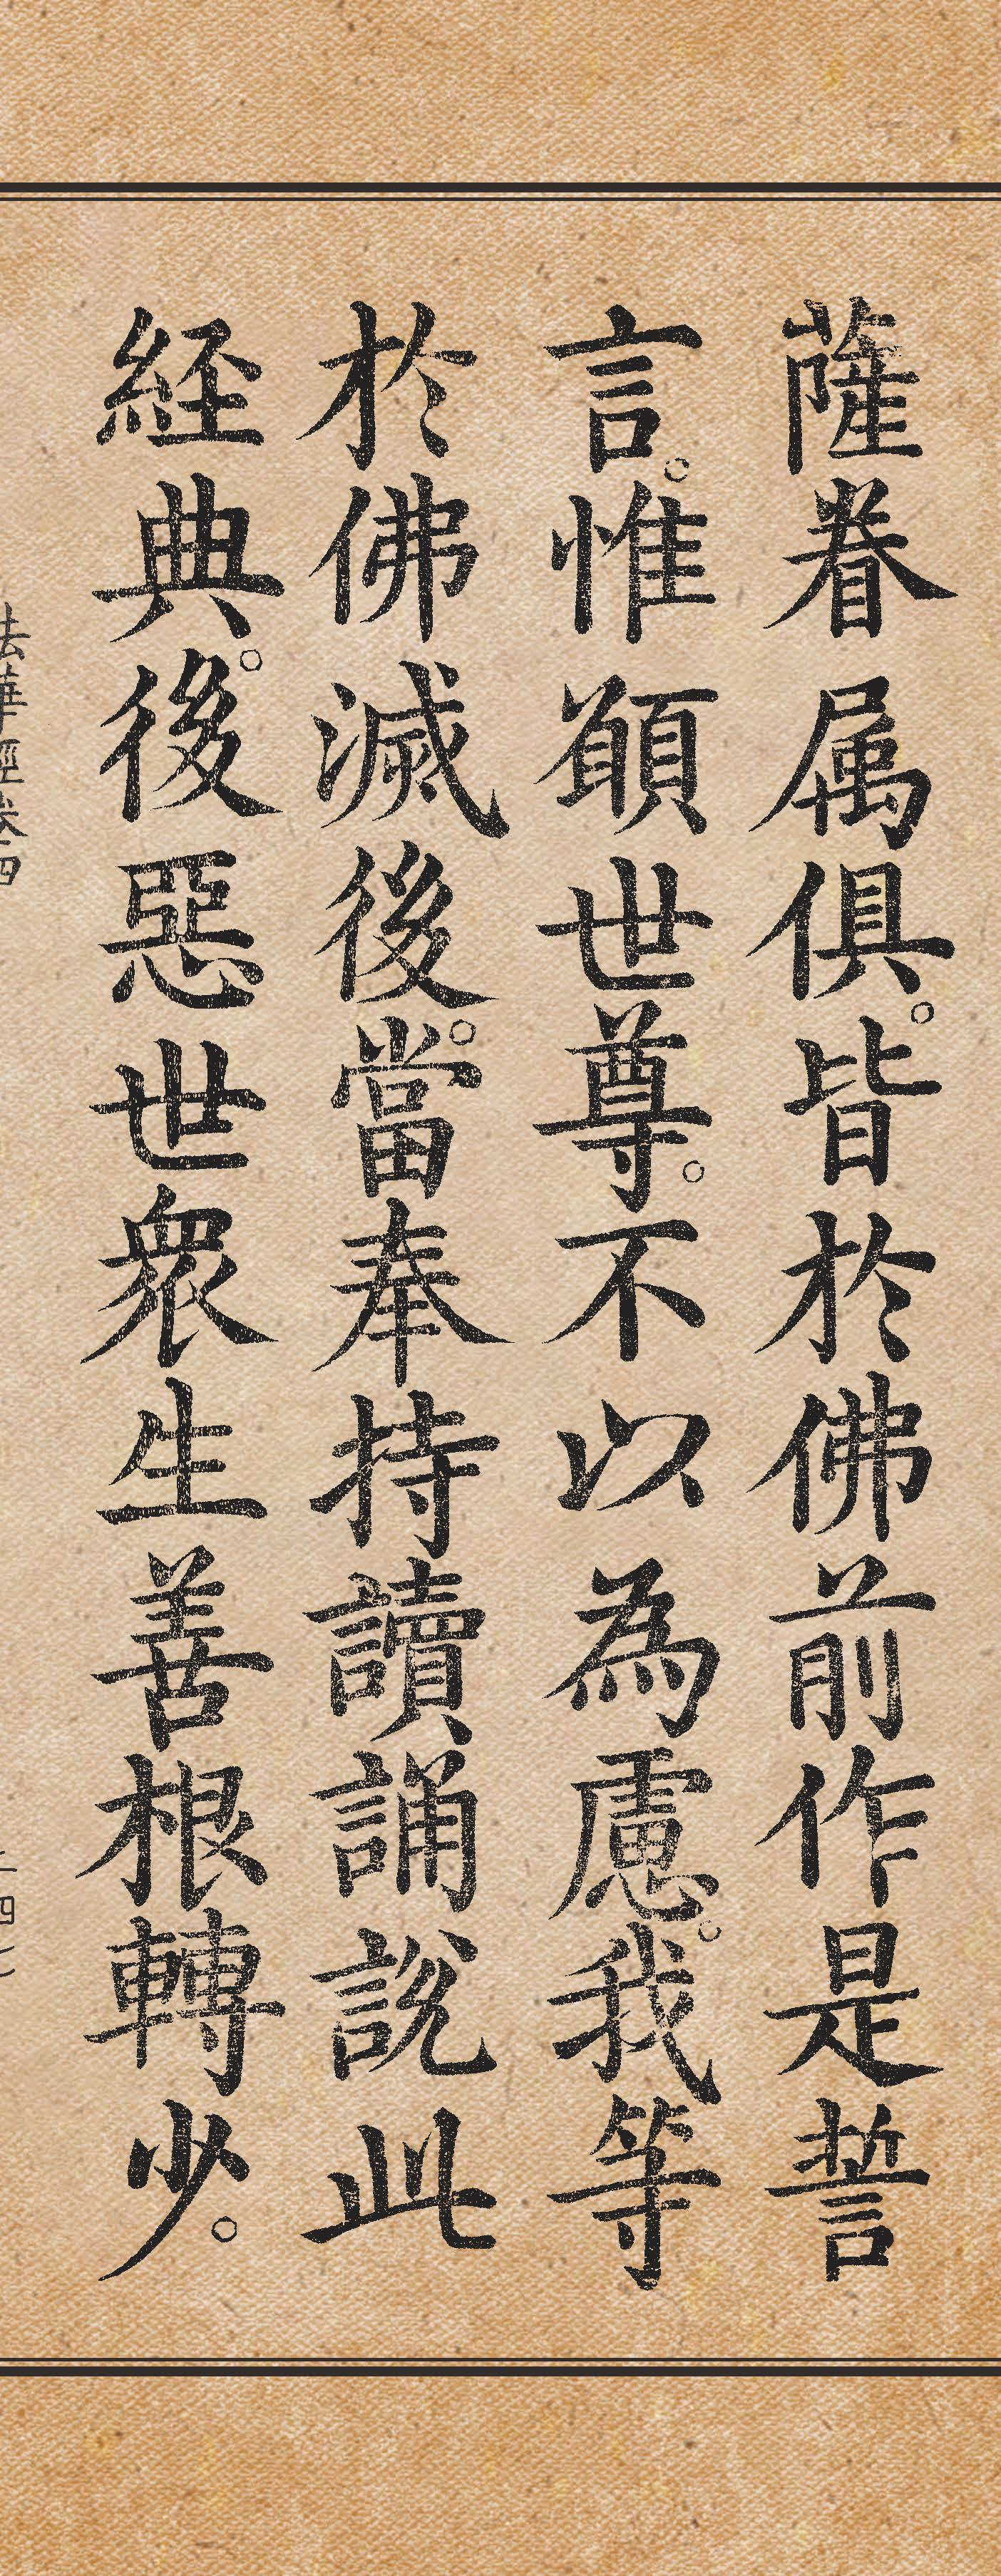 薩眷属俱。皆於佛前作是誓
言。惟願世尊。不以為慮。我等
於佛滅後。當奉持讀誦說此
經典。後惡世眾生善根轉少。
法華經卷四